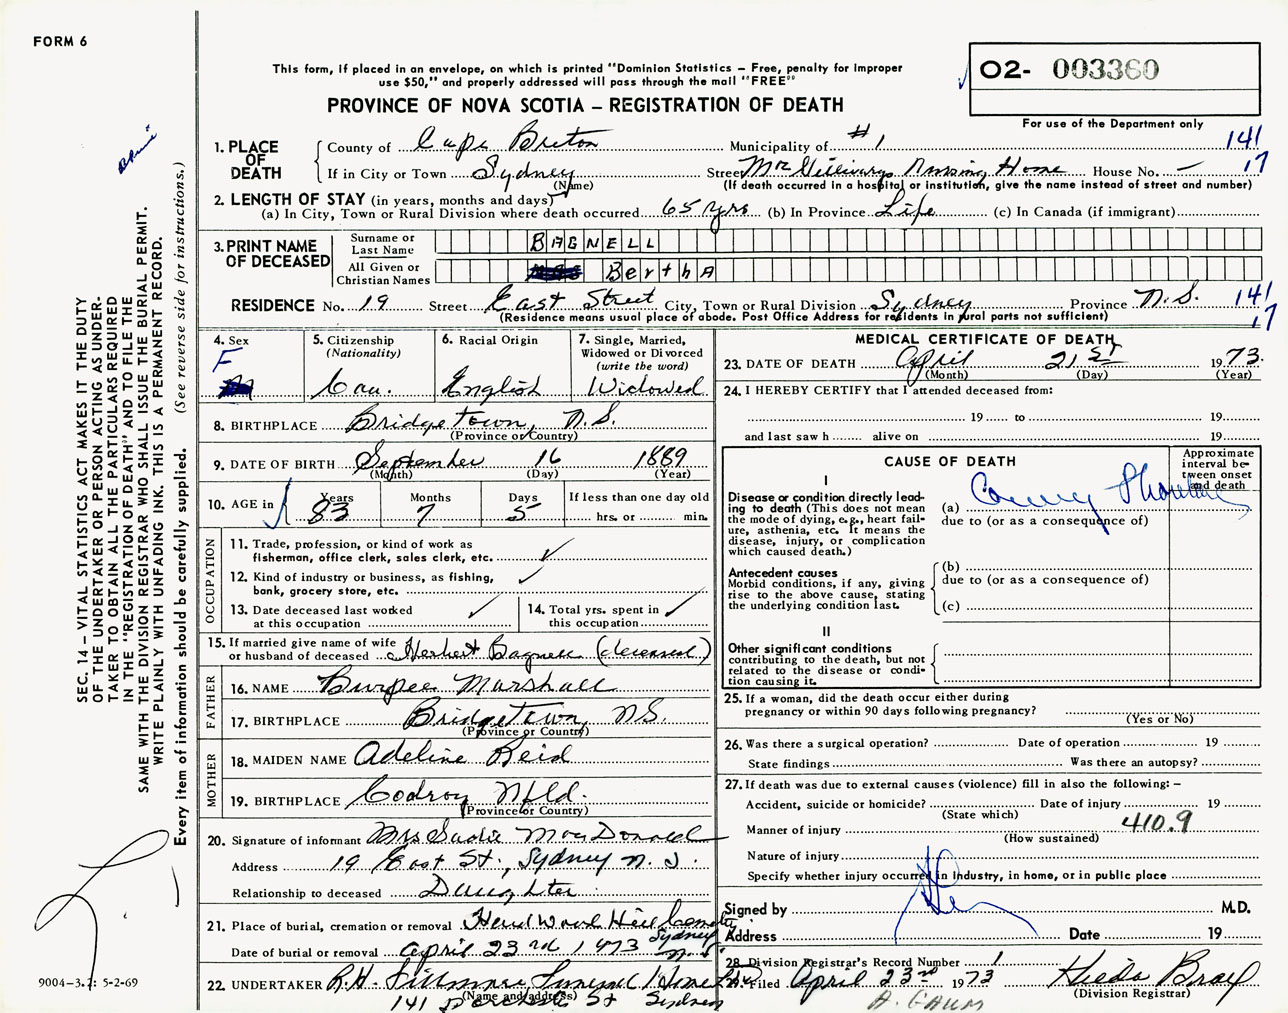 FORM 6
This form, if placed in an envelope, on which is printed "Dominion Statistics – Free, penalty for improper
use $50," and properly addressed will pass through the mail "FREE"
PROVINCE OF NOVA SCOTIA – REGISTRATION OF DEATH
O2- 003360
For use of the Department only
SEC. 14 – VITAL STATISTICS ACT MAKES IT THE DUTY
OF THE UNDERTAKER OR PERSON ACTING AS UNDER-
TAKER TO OBTAIN ALL THE PARTICULARS REQUIRED
IN THE "REGISTRATION OF DEATH" AND TO FILE THE
SAME WITH THE DIVISION REGISTRAR WHO SHALL ISSUE THE BURIAL PERMIT.
WRITE PLAINLY WITH UNFADING INK. THIS IS A PERMANENT RECORD.
Every item of information should be carefully supplied. (See reverse side for instructions.)
1. PLACE OF DEATH
County of Cape Breton Municipality of #1 141
If in City or Town Sydney Street McGillivrays Nursing Home House No. – 17
(Name) (If death occurred in a hospital or institution, give the name instead of street and number)
2. LENGTH OF STAY (in years, months and days)
(a) In City, Town or Rural Division where death occurred 65 yrs (b) In Province Life (c) In Canada (if immigrant)
3. PRINT NAME OF DECEASED
Surname or Last Name BAGNELL
All Given or Christian Names BerthA
RESIDENCE No. 19 Street East Street City, Town or Rural Division Sydney Province N.S. 141
(Residence means usual place of abode. Post Office Address for residents in rural parts not sufficient) 17
4. Sex F
5. Citizenship (Nationality) Can.
6. Racial Origin English
7. Single, Married, Widowed or Divorced (write the word) Widowed
8. BIRTHPLACE Bridgetown, N.S.
(Province or Country)
9. DATE OF BIRTH September 16 1889
(Month) (Day) (Year)
10. AGE in Years 83 Months 7 Days 5 If less than one day old
hrs. or min.
OCCUPATION
11. Trade, profession, or kind of work as
fisherman, office clerk, sales clerk, etc. ✓
12. Kind of industry or business, as fishing,
bank, grocery store, etc. ✓
13. Date deceased last worked
at this occupation ✓
14. Total yrs. spent in
this occupation ✓
15. If married give name of wife
or husband of deceased Herbert Bagnell (deceased)
FATHER
16. NAME Burpee Marshall
17. BIRTHPLACE Bridgetown, N.S.
(Province or Country)
MOTHER
18. MAIDEN NAME Adeline Reid
19. BIRTHPLACE Codroy Nfld.
(Province or Country)
20. Signature of informant Mrs Sadie MacDonald
Address 19 East St., Sydney N.S.
Relationship to deceased Daughter
21. Place of burial, cremation or removal Hardwood Hill Cemetery
Sydney N.S.
Date of burial or removal April 23rd 1973
22. UNDERTAKER R.H. Fillmore Funeral Home
(Name and address)
141 Dorchester St Sydney
9004-3.7: 5-2-69
MEDICAL CERTIFICATE OF DEATH
23. DATE OF DEATH April 21st 1973.
(Month) (Day) (Year)
24. I HEREBY CERTIFY that I attended deceased from:
19 to 19
and last saw h alive on 19
CAUSE OF DEATH
Approximate interval between onset and death
I
Disease or condition directly lead-
ing to death (This does not mean
the mode of dying, e.g., heart fail-
ure, asthenia, etc. It means the
disease, injury, or complication
which caused death.)
(a)
due to (or as a consequence of)
Antecedent causes
Morbid conditions, if any, giving
rise to the above cause, stating
the underlying condition last.
(b)
due to (or as a consequence of)
(c)
II
Other significant conditions
contributing to the death, but not
related to the disease or condi-
tion causing it.
25. If a woman, did the death occur either during
pregnancy or within 90 days following pregnancy?
(Yes or No)
26. Was there a surgical operation? Date of operation 19
State findings Was there an autopsy?
27. If death was due to external causes (violence) fill in also the following: –
Accident, suicide or homicide? Date of injury 19
(State which)
Manner of injury 410.9
(How sustained)
Nature of injury
Specify whether injury occurred in industry, in home, or in public place
Signed by M.D.
Address Date 19
28. Division Registrar's Record Number 1
29. Filed April 23rd 1973
(Division Registrar)